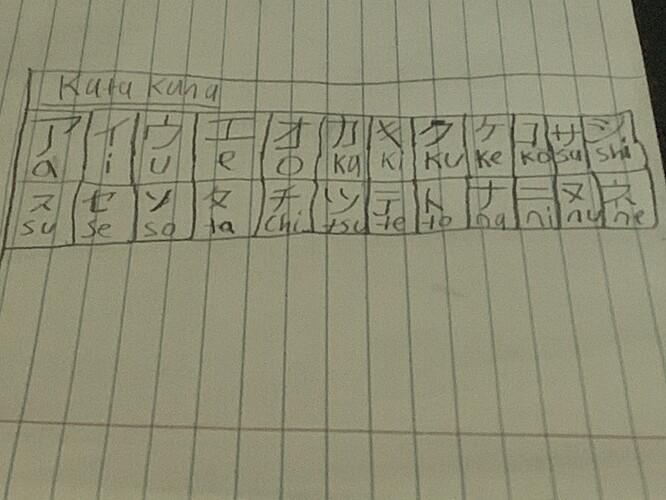 Kata kana
ア イ ウ エ オ カ キ ク ケ コ サ シ
a i u e o ka ki ku ke ko sa shi
ス セ ソ タ チ ツ テ ト ナ ニ ヌ ネ
su se so ta chi tsu te to na ni nu ne